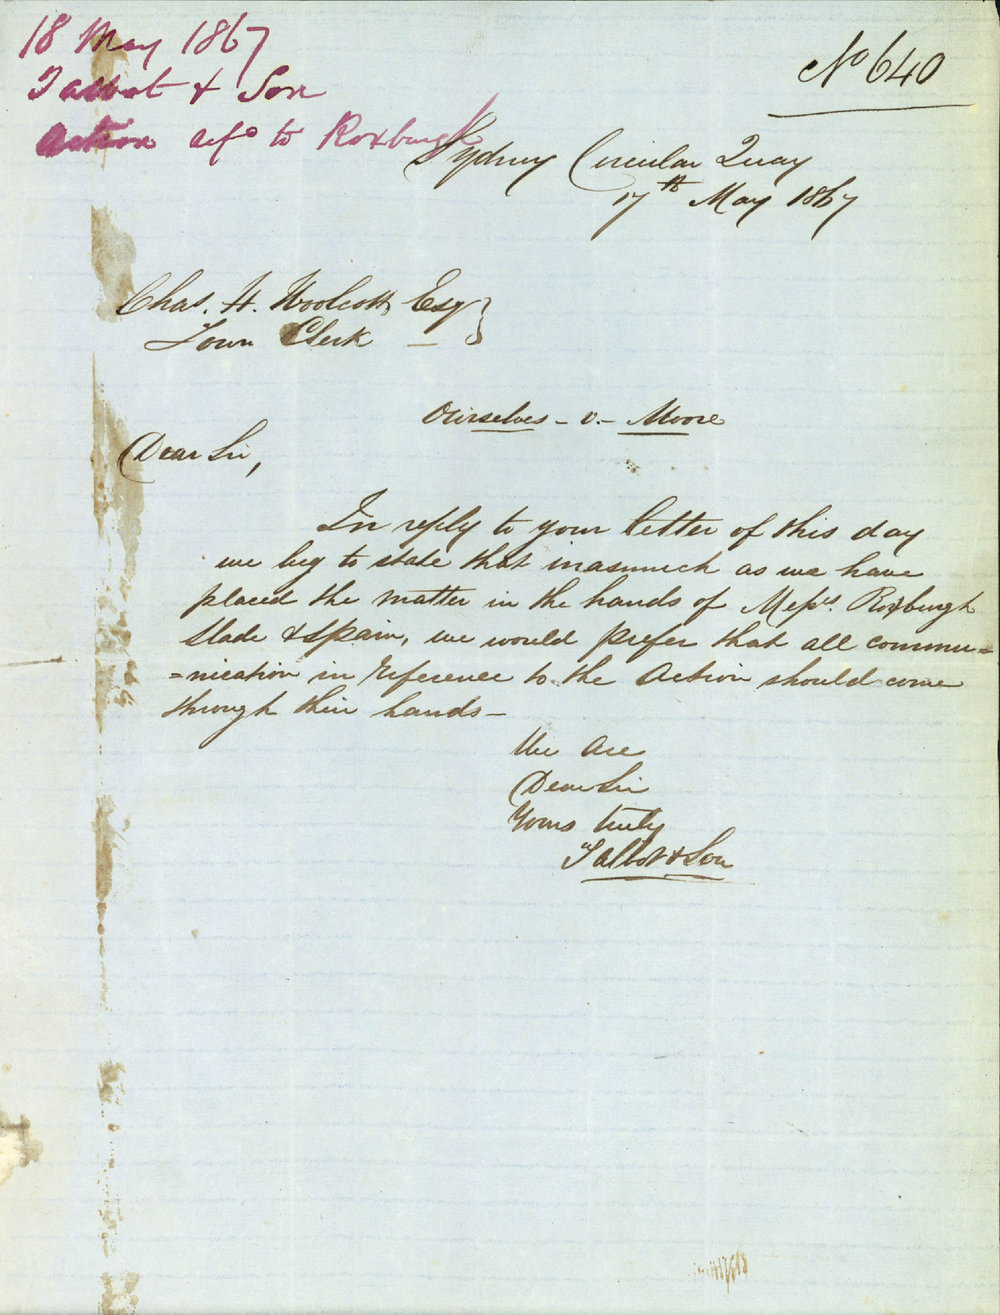 18 May 1867
Talbot & Son
Action refo to Roxburgh
No 640
Sydney Circular Quay
17th May 1867
Chas. H. Woolcott Esq
Town Clerk
Ourselves - v. - Moore
Dear Sir,
In reply to your letter of this day
we beg to state that inasmuch as we have
placed the matter in the hands of Messrs. Roxburgh
Slade & Spain, we would prefer that all commu=
=nication in reference to the Action should come
through their hands -
We are
Dear Sir
Yours truly
Talbot & Son